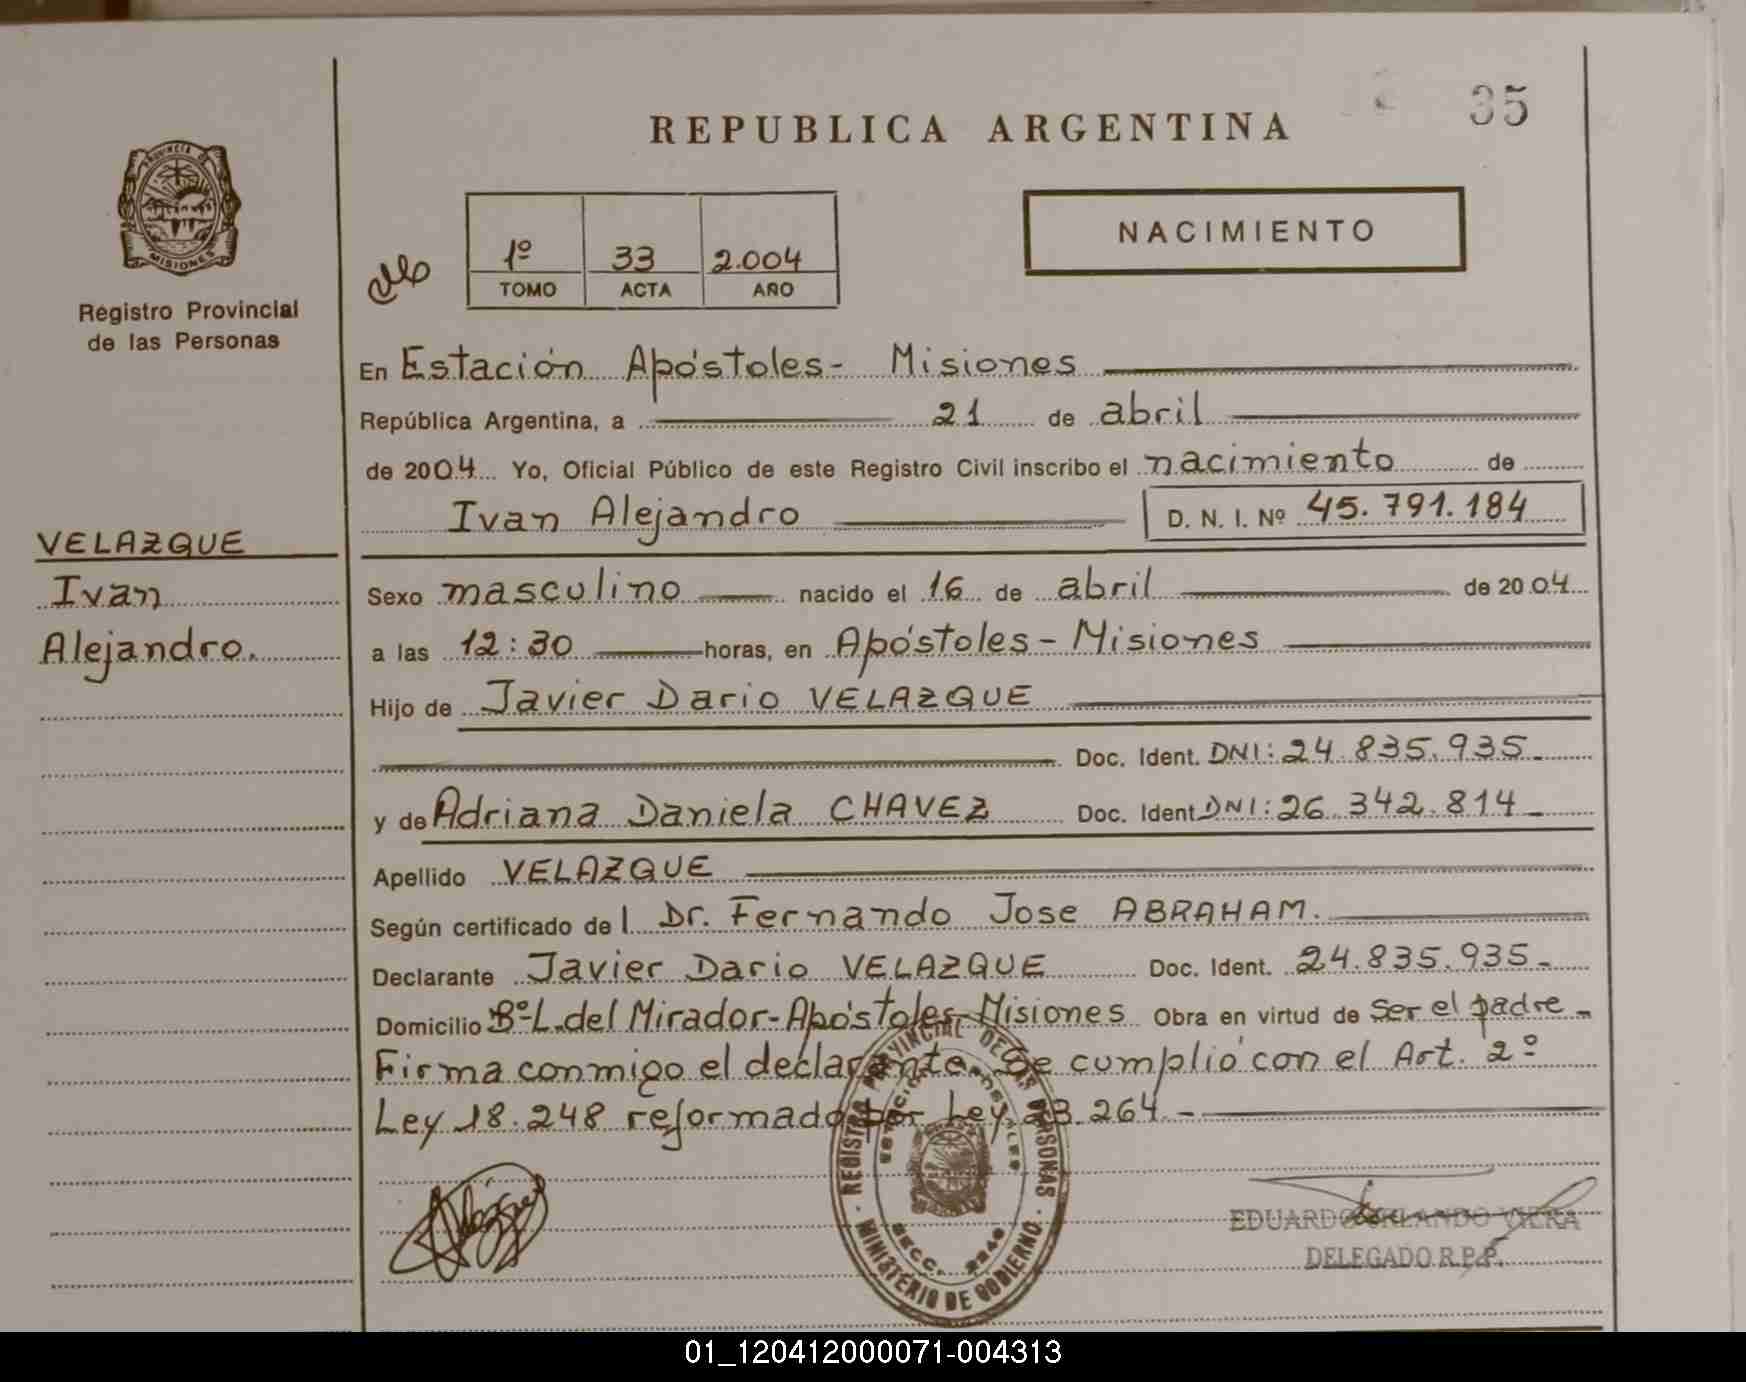 REPUBLICA ARGENTINA
35
PROVINCIA DE
MISIONES
Registro Provincial
de las Personas
1º 33 2.004
TOMO ACTA AÑO
NACIMIENTO
En Estación Apóstoles- Misiones
República Argentina, a 21 de abril
de 2004 Yo, Oficial Público de este Registro Civil inscribo el nacimiento de
Ivan Alejandro D. N. I. Nº 45.791.184
VELAZQUE
Ivan
Alejandro.
Sexo masculino nacido el 16 de abril de 2004
a las 12:30 horas, en Apóstoles - Misiones
Hijo de Javier Dario VELAZQUE
Doc. Ident. DNI: 24.835.935.-
y de Adriana Daniela CHAVEZ Doc. Ident DNI: 26.342.814.-
Apellido VELAZQUE
Según certificado de l Dr. Fernando Jose ABRAHAM.
Declarante Javier Dario VELAZQUE Doc. Ident. 24.835.935.-
Domicilio Bº L. del Mirador - Apóstoles- Misiones Obra en virtud de ser el padre -
Firma conmigo el declarante. Se cumplió con el Art. 2º
Ley 18.248 reformado por Ley 23.264.-
REGISTRO PROVINCIAL DE LAS PERSONAS
SECC. 2240
MINISTERIO DE GOBIERNO
EDUARDO ORLANDO VIERA
DELEGADO R.P.P.
01_120412000071-004313